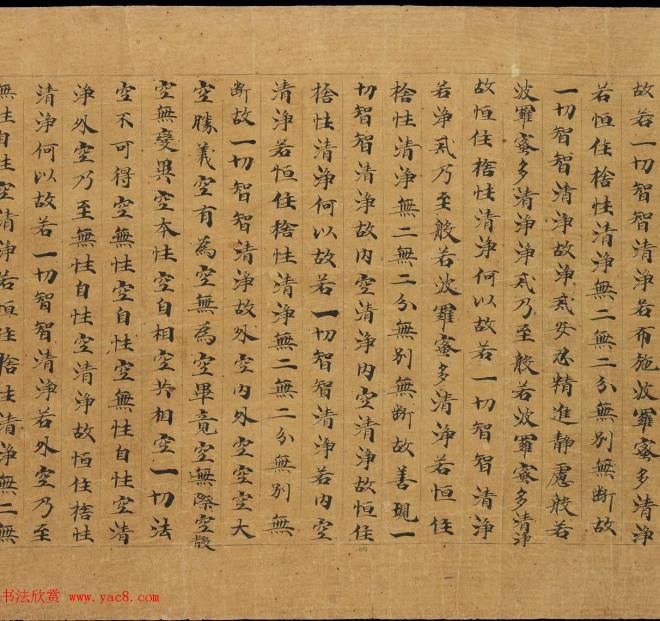 故若一切智智清淨若布施波羅蜜多清淨
若恒住捨性清淨無二無二分無別無断故
一切智智清淨故淨戒安忍精進静慮般若
波羅蜜多清淨淨戒乃至般若波羅蜜多清淨
故恒住捨性清淨何以故若一切智智清淨
若淨戒乃至般若波羅蜜多清淨若恒住
捨性清淨無二無二分無別無断故善現一
切智智清淨故内空清淨内空清淨故恒住
捨性清淨何以故若一切智智清淨若内空
清淨若恒住捨性清淨無二無二分無別無
断故一切智智清淨故外空内外空空空大
空勝義空有為空無為空畢竟空無際空散
空無變異空本性空自相空共相空一切法
空不可得空無性空自性空無性自性空清
淨外空乃至無性自性空清淨故恒住捨性
清淨何以故若一切智智清淨若外空乃至
無性自性空清淨若恒住捨性清淨無二無
书法欣赏 www.yac8.com